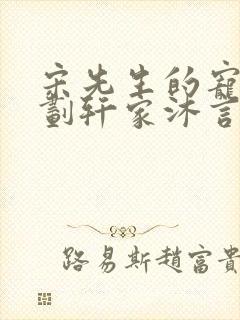 宋先生的寵
劃轩家沐言
路易斯趙富貴